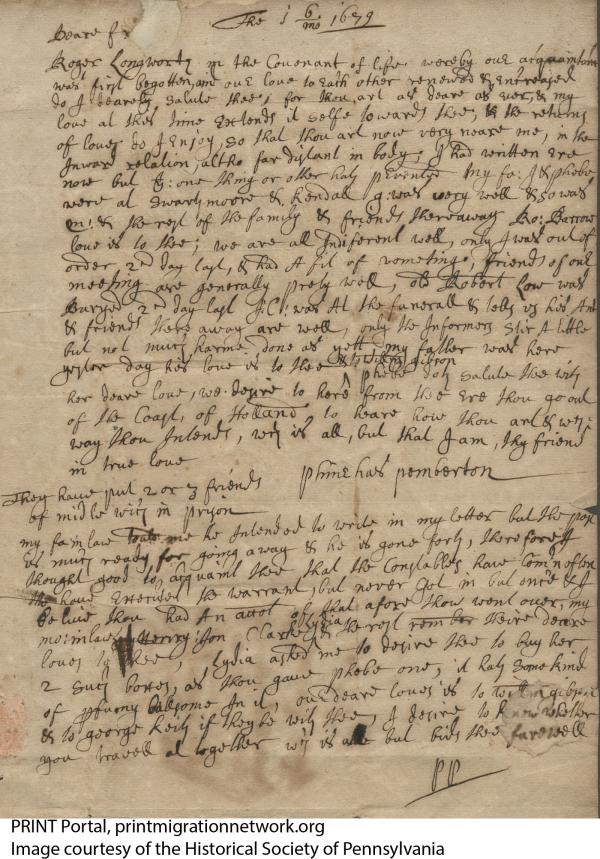 The 1 6/mo 1679
Deare fr
Roger Longworth in the Covenant of life wereby our acquaintan
was first begotten, and our love to Each other renewed & Entreased
do I dearely Salute thee, for thou art as deare as ever, & my
love at this time Extends it selfe towards thee, & the returns
of loves do I Enjoy, so that thou art now very neare me, in the
Inward relation, altho far distant in body, I had written Ere
now but one thing or other hath prevented My fa: J & phebe
were at Swarthmoore & Kendall g: was very well & so was
m: & the rest of the family & friends thereaway Ro: Barrow
love is to thee; we are all Indiferent well, only I was out of
order 2nd day last, & had A fit of vometing, friends of our
meeting are generally prety well, old Robert Low was
Buryed 2nd day last J:C: was At the funerall & tells us his Ant
& friends there away are well, only the Informers Stir A little
but not much harme done as yett my father was here
yester day his love is to thee & to William gibson
phebe doth Salute thee with
her deare love, we desire to here from thee Ere thou go out
of the Coast, of Holland to heare how thou art & wch
way thou Intends, wch is all, but that I am, thy friend
in true love
Phinehas pemberton
They have put 2 or 3 friends
of midle wich in prison
my fa in law told me he Intended to write in my letter but the post
is much ready for going away & he is gone forth, therefore I
thought good to acquaint thee that the Constables have Com'n often
to have Executed the warrant, but never got in but once & I
belive thou had An accot of that afore thou went over, my
mo: in law Henry: Jon Clarke Lydia & the rest remember theire deare
loves to thee, Lydia asked me to desire thee to buy her
2 such boxes, as thou gave phebe one, it hath some kind
of balsome In it, our deare loves is to william gibson
& to george Keith if they be with thee, I desire to know whether
you travell al together wch is all but bids thee farewell
PP
PRINT Portal, printmigrationnetwork.org
Image courtesy of the Historical Society of Pennsylvania